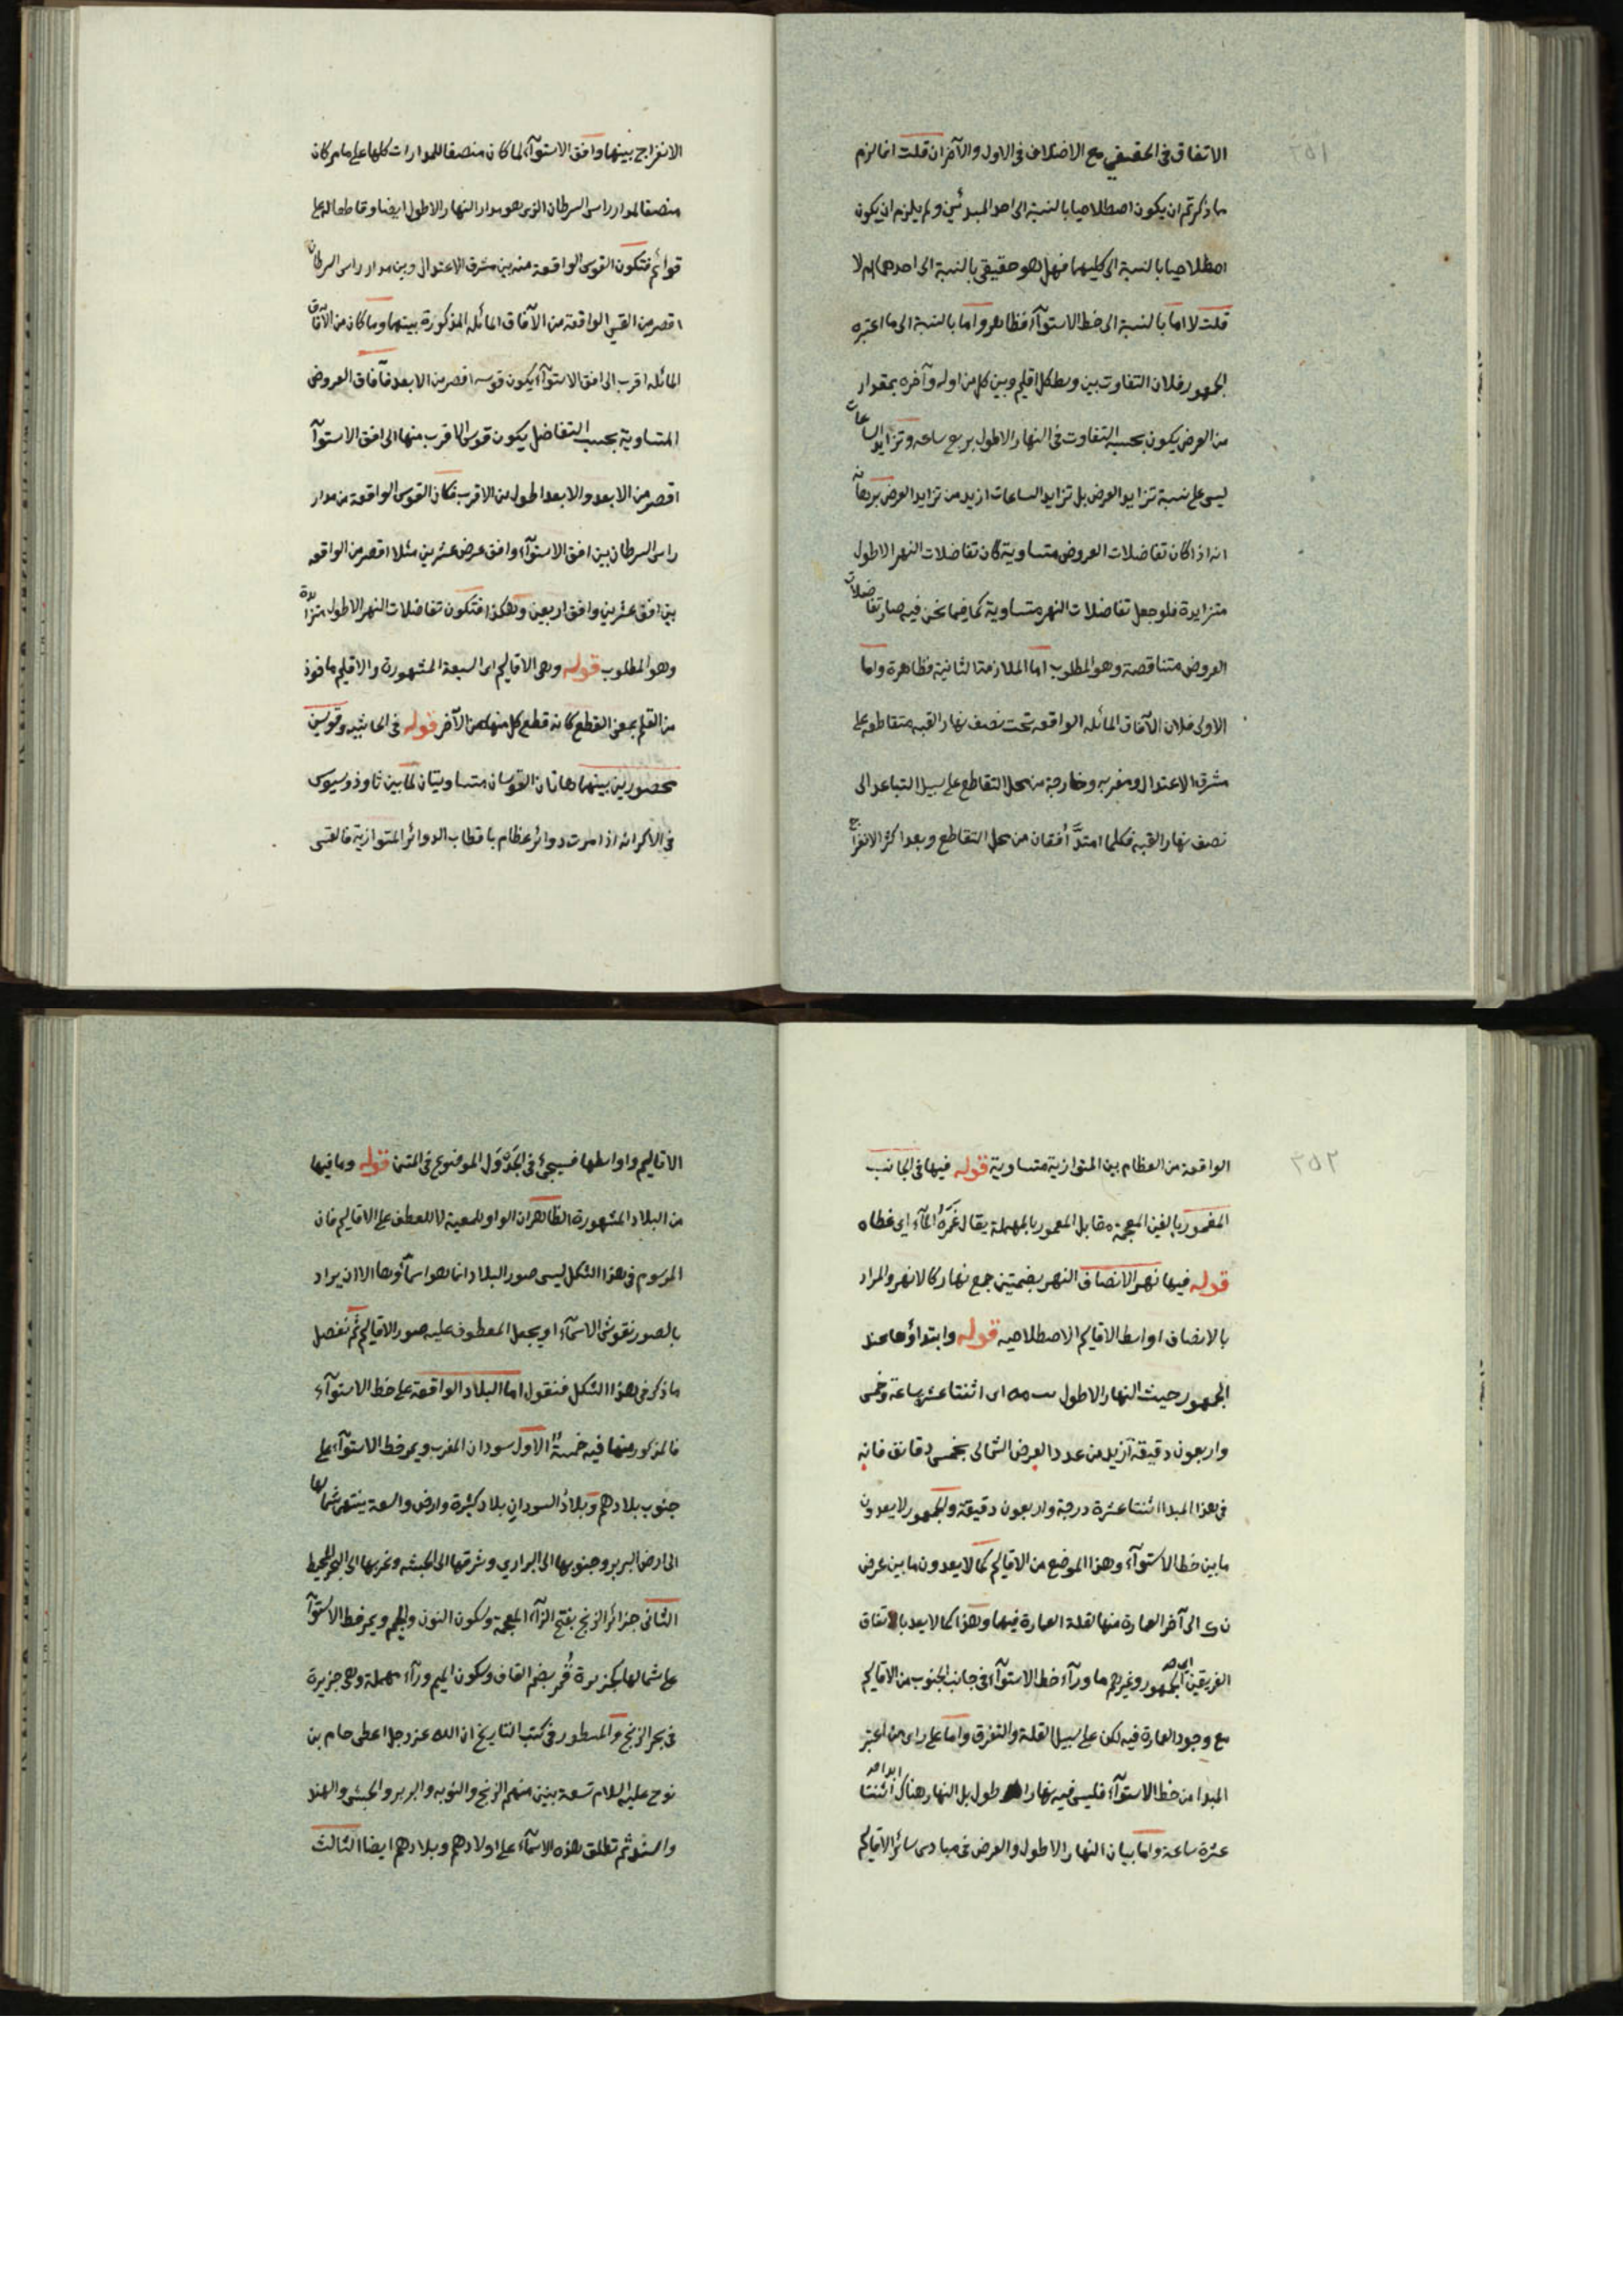 ٢٥١
الاتفاق فى الحقيقى مع الاختلاف فى الاول والآخر ان قلت انما لزم
ما ذكرتم ان يكون اصطلاحيا بالنسبة الى احد المبدئين ولم يلزم ان يكون
اصطلاحيا بالنسبة الى كليهما فهل هو حقيقى بالنسبة الى احدهما ام لا
قلت لا اما بالنسبة الى خط الاستوآء فظاهر واما بالنسبة الى ما اعتبره
الجمهور فلان التفاوت بين وسط كل اقليم وبين كل من اوله وآخره بمقدار
من العرض يكون بحسبه التفاوت فى النهار الاطول بربع ساعه وتزايد الساعات
ليس على نسبة تزايد العرض بل تزايد الساعات ازيد من تزايد العرض برهانه
انه اذا كان تفاضلات العروض متساوية كان تفاضلات النهر الاطول
متزايدة فلو جعل تفاضلات النهر متساوية كما فيما نحن فيه صار تفاضلات
العروض متناقصة وهو المطلوب اما الملازمة الثانية فظاهرة واما
الاولى فلان الآفاق المائله الواقعه تحت نصف نهار القبه متقاطعه على
مشرق الاعتدال ومغربه وخارجة من محل التقاطع على سبيل التباعد الى
نصف نهار القبه فكلما امتدَّ أفقان من محل التقاطع وبعد اكثر الانفراج
الانفراج بينهما وافق الاستوآء لما كان منصفا للمدارات كلها على ما مر كان
منصفا لمدار راس السرطان الذى هو مدار النهار الاطول ايضا وقاطعا له على
قوائم فتكون القوس الواقعة منه بين مشرق الاعتدال وبين مدار راس السرطان
اقصر من القسى الواقعة من الآفاق المائله المذكورة بينهما وما كان من الآفاق
المائله اقرب الى افق الاستوآء يكون قوسه اقصر من الابعد فآفاق العروض
المتساوية بحسب التفاضل يكون قوس الاقرب منها الى افق الاستوآء
اقصر من الابعد والابعد اطول من الاقرب فكان القوس الواقعة من مدار
راس السرطان بين افق الاستوآء وافق عرض عشرين مثلا اقصر من الواقعه
بين افق عشرين وافق اربعين وهكذا فتكون تفاضلات النهر الاطول متزايدة
وهو المطلوب قوله وهى الاقاليم اى السبعة المشهورة والاقليم ماخوذ
من القلم بمعنى القطع كانه قطع كل منها عن الآخر قوله فى الحاشيه وقوسين
محصورين بينهما هاتان القوسان متساويتان لما بين ثاوذوسيوس
فى الاكر انه اذا مرت دوائر عظام باقطاب الدوائر المتوازية فالقسى
٢٥٢
الواقعة من العظام بين المتوازية متساوية قوله فيها فى الجانب
المغمور بالغين المعجمة مقابل المعمور بالمهملة يقال غَمَرَهُ المآء اى غطاه
قوله فيها نهر الانصاف النهر بضمتين جمع نهار كالانهر والمراد
بالانصاف اواسط الاقاليم الاصطلاحيه قوله وابتداؤها عند
الجمهور حيث النهار الاطول يب مه اى اثنتا عشر ساعة وخمس
واربعون دقيقة ازيد من عدد العرض الشمالى بخمس دقائق فانه
فى هذا المبدا اثنتا عشرة درجة واربعون دقيقة والجمهور لا يعدون
ما بين خط الاستوآء وهذا الموضع من الاقاليم كما لا يعدون ما بين عرض
ن ى الى آخر العمارة منها لقلة العمارة فيهما وهذا كما لا يعد باتفاق
الفريقين الجمهور وغيرهم ما ورآء خط الاستوآء فى جانب الجنوب من الاقاليم
مع وجود العمارة فيه لكن على سبيل القلة والتفرق واما على راى من اعتبر
المبدا من خط الاستوآء فليس فيه نهار اطول بل النهار هناك ابدا اثنتا
عشرة ساعة واما بيان النهار الاطول والعرض فى مبادى سائر الاقاليم
الاقاليم واواسطها فسيجئ فى الجَدْوَل الموضوع فى المتن قوله وما فيها
من البلاد المشهورة الظاهر ان الواو للمعية لا للعطف على الاقاليم فان
المرسوم فى هذا الشكل ليس صور البلاد انما هو اسمآؤها الا ان يراد
بالصور نقوش الاسمآء او يجعل المعطوف عليه صور الاقاليم ثم نفصل
ما ذكر فى هذا الشكل فنقول اما البلاد الواقعة على خط الاستوآء
فالمذكور منها فيه خمسةٌ الاول سودان المغرب ويمر خط الاستوآء على
جنوب بلادهم وبلادُ السودان بلاد كثيرة وارض واسعة ينتهى شمالها
الى ارض البربر وجنوبها الى البرارى وشرقها الى الحبشه وغربها الى البحر المحيط
الثانى جزائر الزنج بفتح الزآء المعجمة وسكون النون والجيم ويمر خط الاستوآء
على شمالها كجزيرة قُمْر بضم القاف وسكون الميم ورآء مهملة وهى جزيرة
فى بحر الزنج والمسطور فى كتب التاريخ ان الله عز وجل اعطى حام بن
نوح عليه السلام تسعة بنين منهم الزنج والنوبه والبربر والحبش والهند
والسند ثم تطلق هذه الاسمآء على اولادهم وبلادهم ايضا الثالث